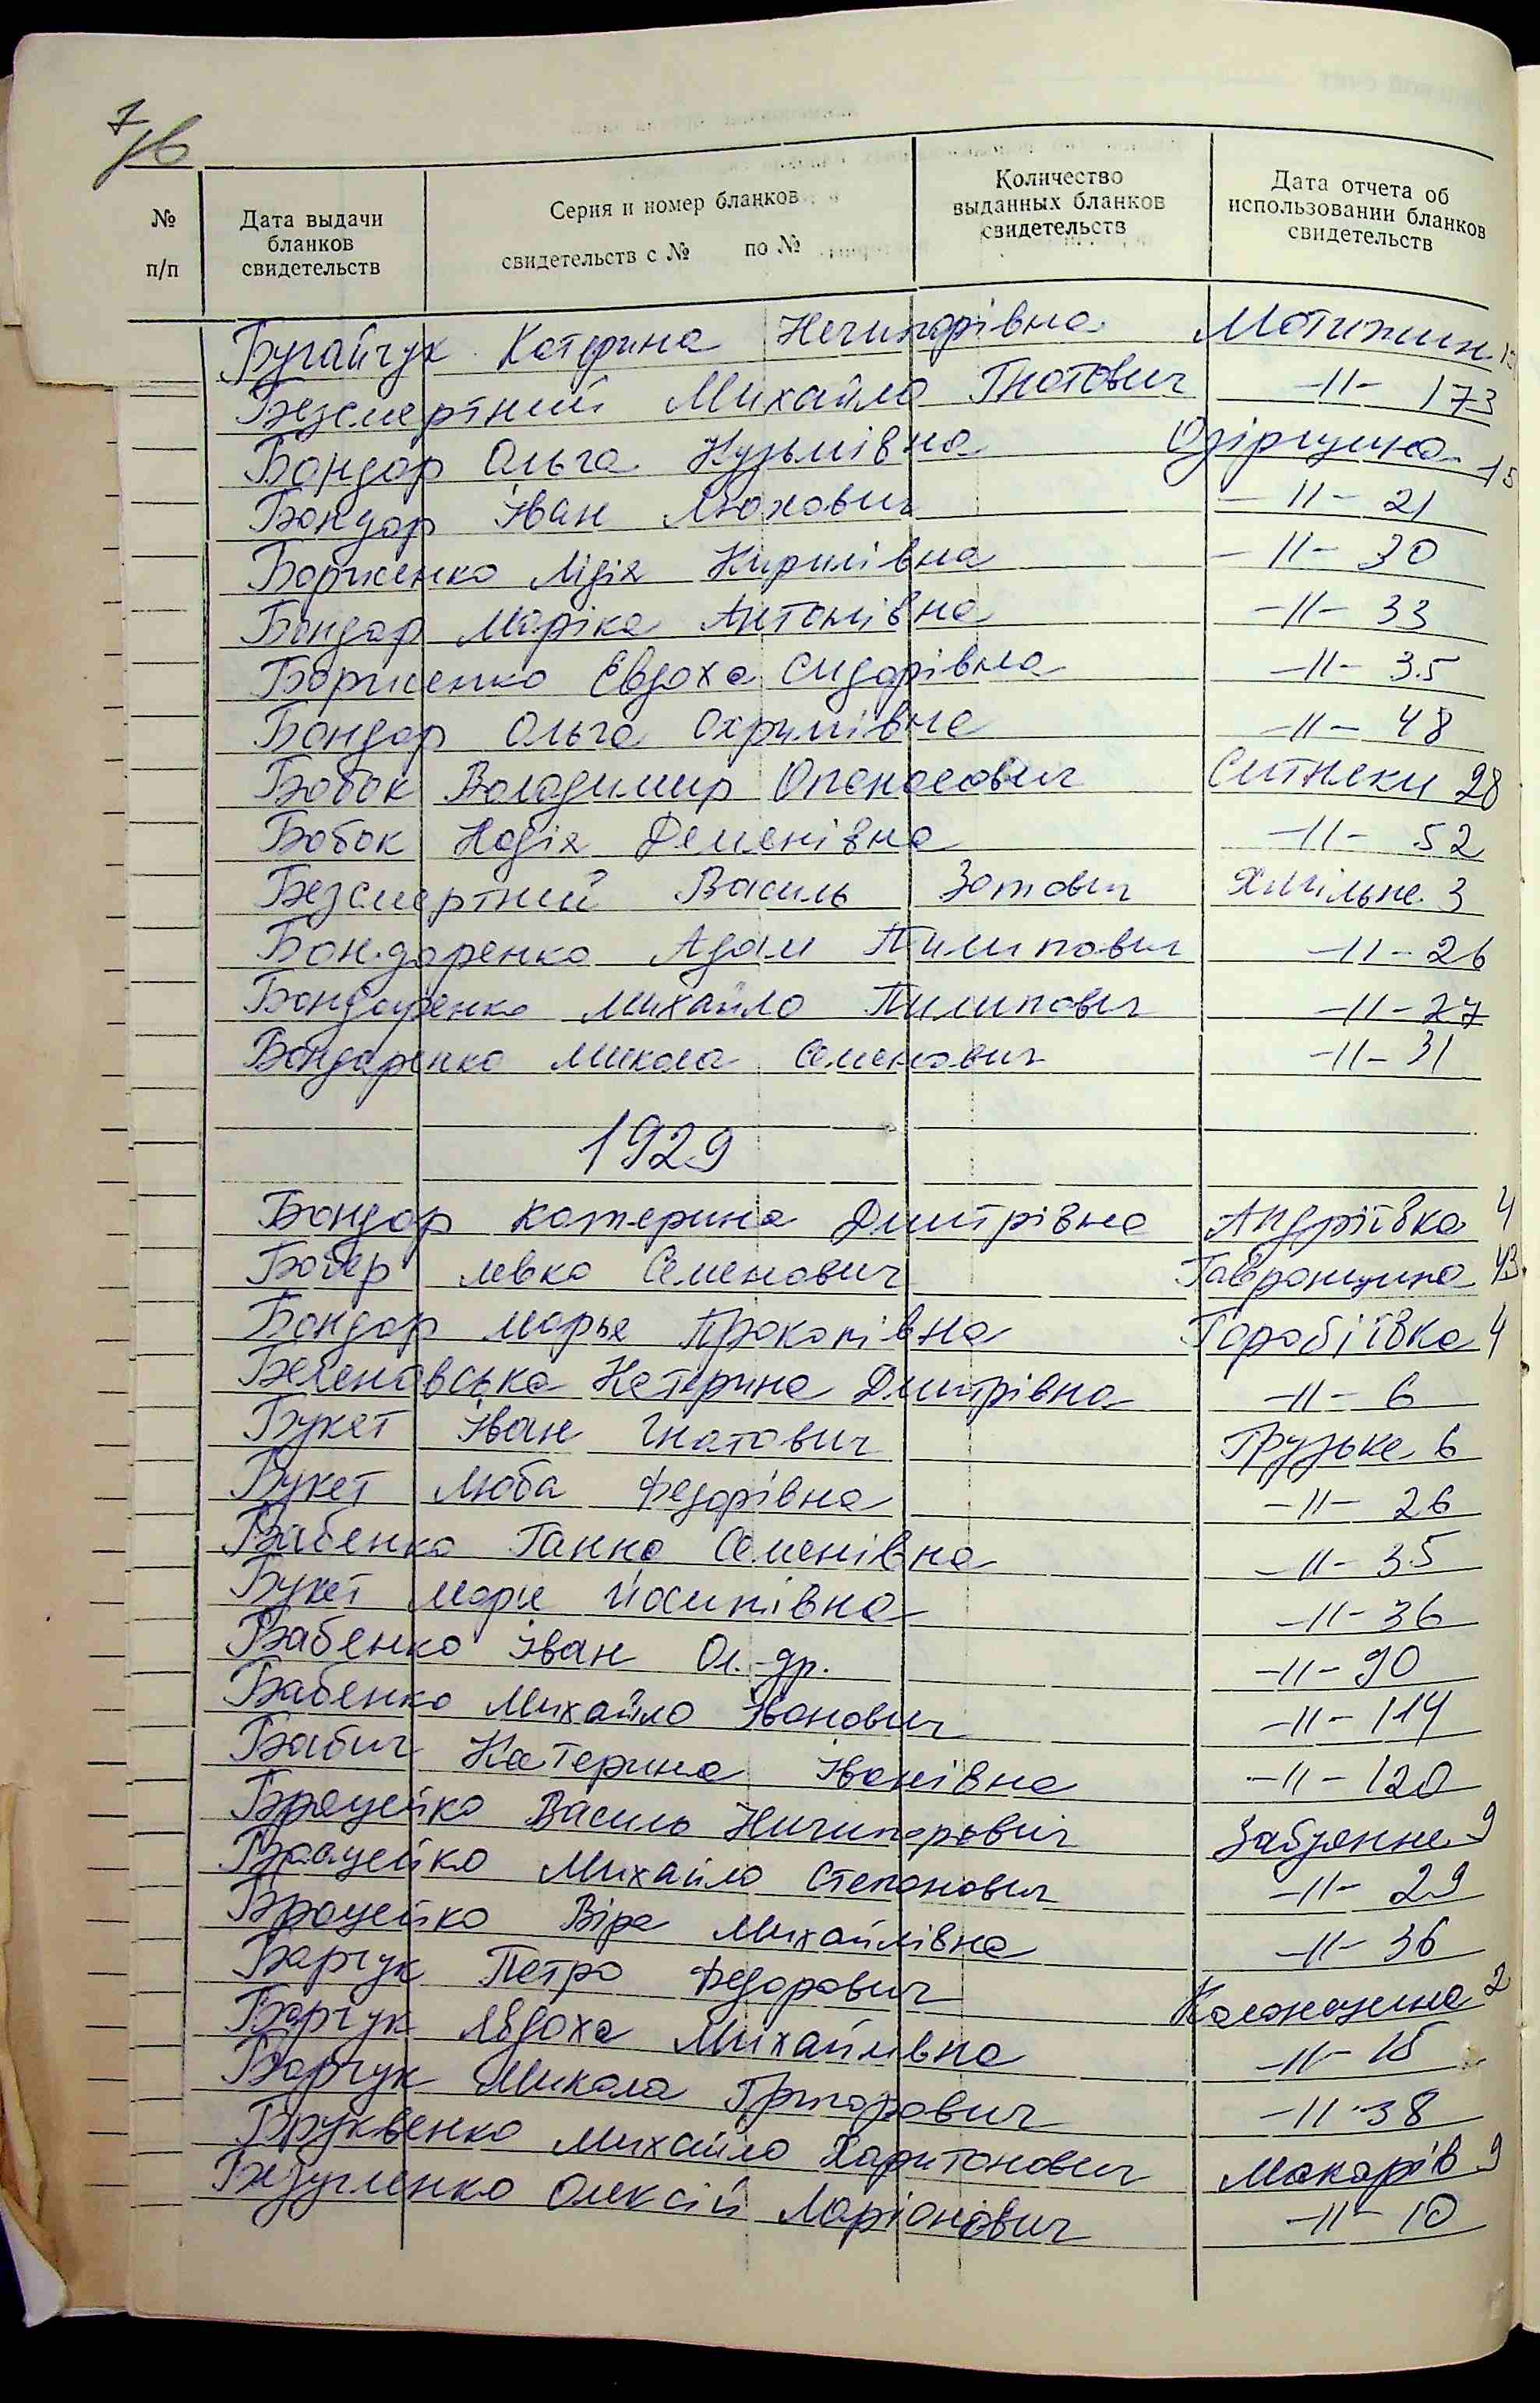 7
№ п/п
Дата выдачи бланков свидетельств
Серия и номер бланков свидетельств с № по №
Количество выданных бланков свидетельств
Дата отчета об использовании бланков свидетельств
Бугайчук Катерина Нечипорівна Мотижин
Безсмертний Михайло Гнатович -11- 173
Бондар Ольга Кузьмівна Озірщина 15
Бондар Іван Люхович -11- 21
Борженко Лідія Кирилівна -11- 30
Бондар Маріка Антонівна -11- 33
Борженко Евдоха Сидорівна -11- 35
Бондар Ольга Охримівна -11- 48
Бобок Володимир Опанасович Ситняки 28
Бобок Надія Деменівна -11- 52
Безсмертний Василь Зотович Хмільне 3
Бондаренко Адам Пилипович -11- 26
Бондаренко Михайло Пилипович -11- 27
Бондаренко Микола Семенович -11- 31
1929
Бондар Катерина Дмитрівна Андріївка 4
Бобер Левко Семенович Гавронщина 43
Бондар Марья Прокопівна Горобіївка 4
Беленовська Катерина Дмитрівна -11- 6
Букет Іван Гнатович Грузьке 6
Букет Люба Федорівна -11- 26
Бабенко Ганна Семенівна -11- 35
Букет Марія Йосипівна -11- 36
Бабенко Іван Ол-др. -11- 90
Бабенко Михайло Іванович -11- 114
Бабич Катерина Іванівна -11- 120
Брацейко Василь Ничипорович Забуянне 9
Брацейко Михайло Степанович -11- 29
Брацейко Віра Михайлівна -11- 36
Барчук Петро Федорович Колонщина 2
Барчук Явдоха Михайлівна -11- 15
Барчук Микола Григорович -11- 38
Бруквенко Михайло Харитонович Макарів 9
Безугленко Олексій Ларіонович -11- 10